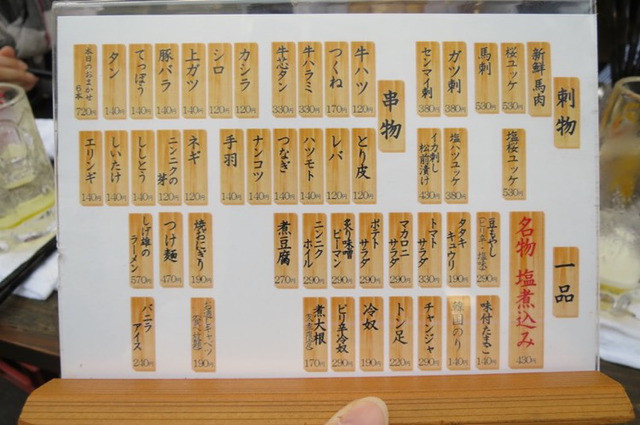 刺物
新鮮馬肉
桜ユッケ 530円
馬刺 530円
ガツ刺 380円
センマイ刺 380円
塩桜ユッケ 530円
塩ハツユッケ 380円
イカ刺し 松前漬け 430円
串物
牛ハツ 120円
つくね 170円
牛ハラミ 330円
牛芯タン 330円
カシラ 120円
シロ 120円
上ガツ 140円
豚バラ 140円
てっぽう 140円
タン 140円
本日のおまかせ 6本 720円
とり皮 120円
レバ 120円
ハツモト 140円
つなぎ 140円
ナンコツ 140円
手羽 140円
ネギ 120円
ニンニクの芽 120円
ししとう 140円
しいたけ 140円
エリンギ 140円
一品
名物 塩煮込み 430円
豆もやし 290円
タタキキュウリ 190円
トマトサラダ 330円
マカロニサラダ 290円
ポテトサラダ 290円
炙り味噌ピーマン 290円
ニンニクホイル 290円
煮豆腐 270円
焼おにぎり 190円
つけ麺 470円
しげ雄のラーメン 570円
味付たまご 140円
韓国のり 140円
チャンジャ 290円
トン足 220円
冷奴 190円
ピリ辛冷奴 290円
煮大根 170円
190円
バニラアイス 240円